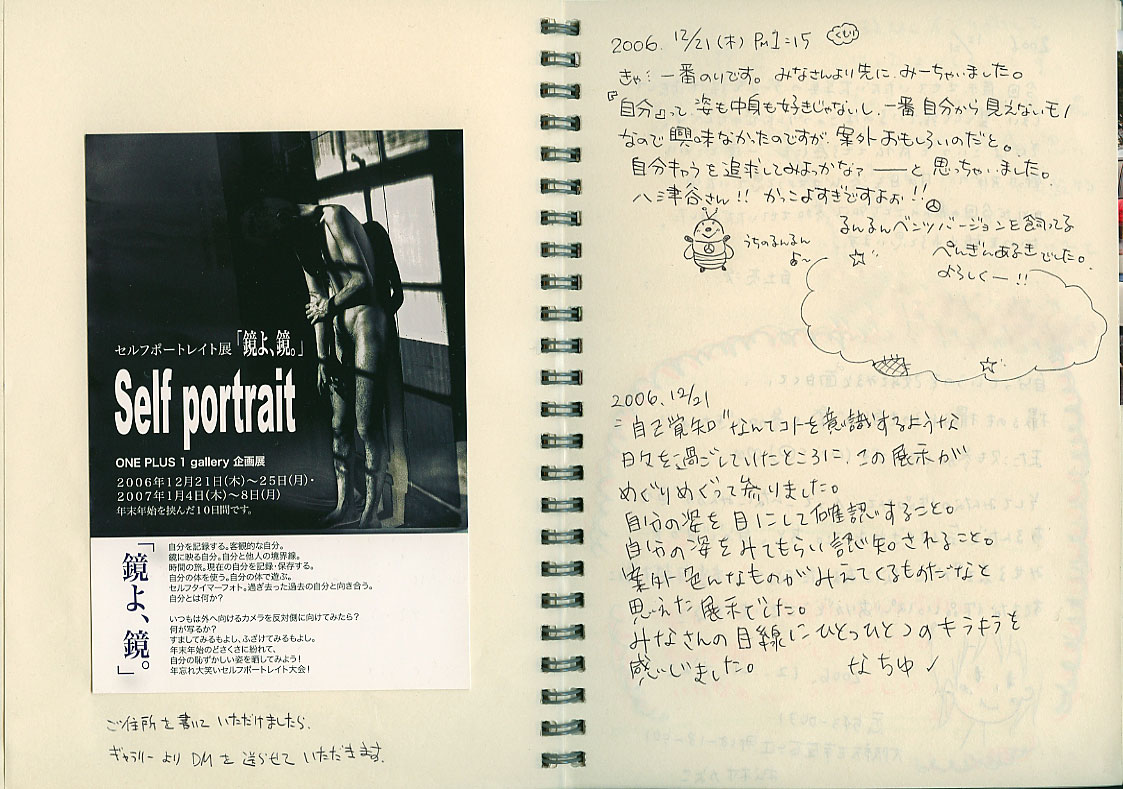 セルフポートレイト展「鏡よ、鏡。」
Self portrait
ONE PLUS 1 gallery 企画展
2006年12月21日(木)〜25日(月)・
2007年1月4日(木)〜8日(月)
年末年始を挟んだ10日間です。
「鏡よ、鏡。」
自分を記録する。客観的な自分。
鏡に映る自分。自分と他人の境界線。
時間の旅。現在の自分を記録・保存する。
自分の体を使う。自分の体で遊ぶ。
セルフタイマーフォト。過ぎ去った過去の自分と向き合う。
自分とは何か?
いつもは外へ向けるカメラを反対側に向けてみたら?
何が写るか?
すましてみるもよし、ふざけてみるもよし。
年末年始のどさくさに紛れて、
自分の恥ずかしい姿を晒してみよう!
年忘れ大笑いセルフポートレイト大会!
ご住所を書いていただけましたら、
ギャラリーよりDMを送らせていただきます。
2006. 12/21 (木) PM1:15 くもり
きゃ: 一番のりです。みなさんより先に みーちゃいました。
『自分』って 姿も中身も好きじゃないし、一番 自分から見えないモノ
なので興味なかったのですが、案外おもしろいのだと。
自分キャラを追求してみよっかなァ ──と 思っちゃいました。
八津谷さん!! かっこよすぎですよぉ!!
うちのるんるん
よ〜
るんるんベンツバージョンを飼ってる
ぺんぎんあるきでした。
よろしくー!!
2006. 12/21
"自己覚知"なんてコトを意識するような
日々を過ごしていたところに、この展示が
めぐりめぐって参りました。
自分の姿を目にして確認すること。
自分の姿をみてもらい認知されること。
案外 色んなものがみえてくるものだなと
思えた展示でした。
みなさんの目線にひとつひとつのキラキラを
感じました。 なちゅ